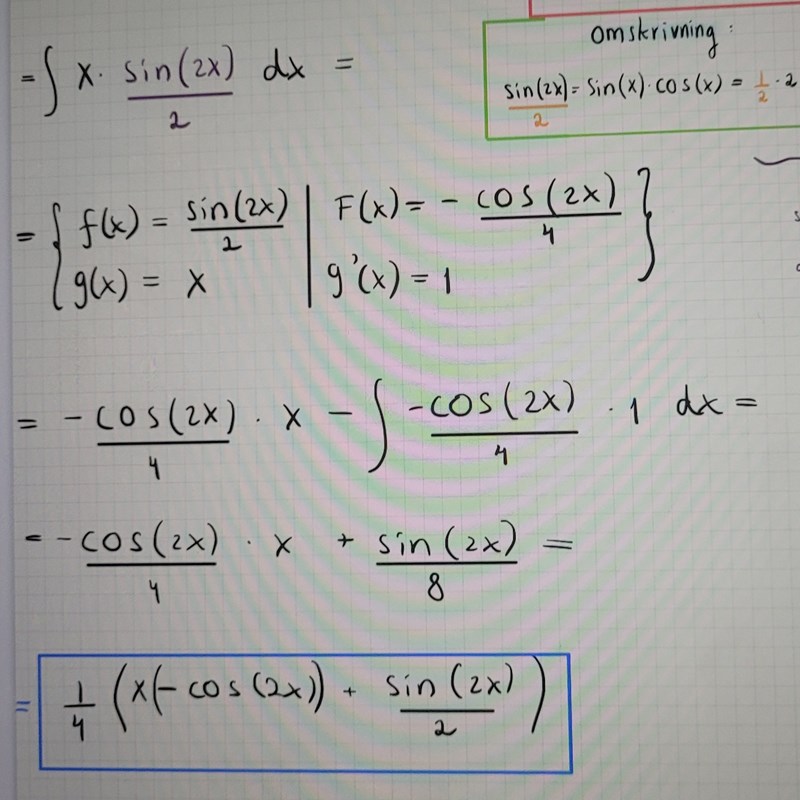 omskrivning:
sin(2x)/2 = sin(x)·cos(x) = 1/2 · 2
= ∫ x · sin(2x)/2 dx =
= { f(x) = sin(2x)/2 | F(x) = - cos(2x)/4 }
g(x) = x | g'(x) = 1
= - cos(2x)/4 · x - ∫ -cos(2x)/4 · 1 dx =
= - cos(2x)/4 · x + sin(2x)/8 =
= 1/4 (x(-cos(2x)) + sin(2x)/2)